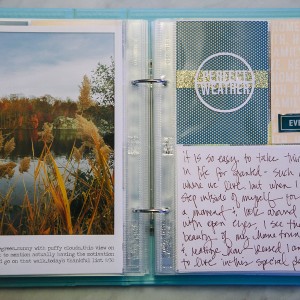 breezy, sunny with puffy clouds, this view on
to mention actually having the motivation
go on that walk, today's thankful list. 1/30
PERFECT
WEATHER
EVE
it is so easy to take thin
in life for granted - such a
where we live. but when i
step outside of myself for
a moment & look around
with open eyes i see the
beauty of my hometown
& realize how blessed i am
to live in this special pla